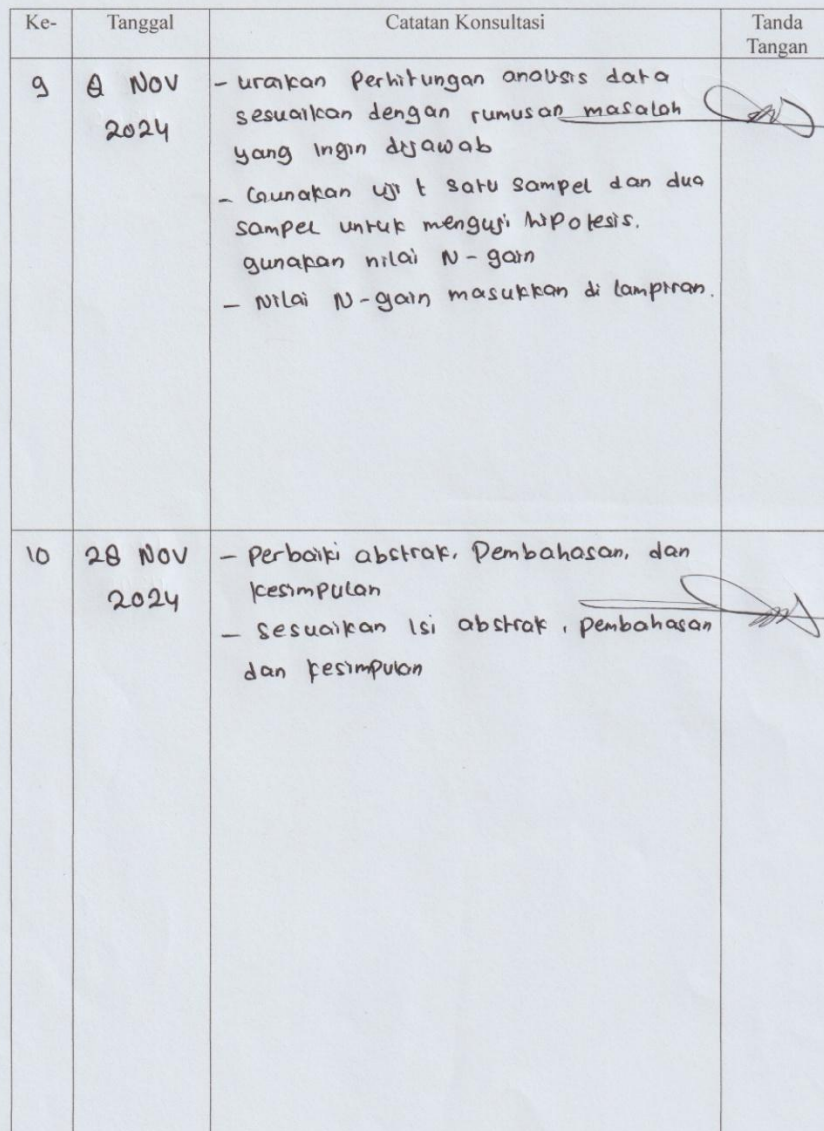 Ke- Tanggal Catatan Konsultasi Tanda
Tangan
9 8 NOV - uraikan Perhitungan analisis data
2024 sesuaikan dengan rumusan masalah
yang ingin dijawab
- Gunakan uji t satu sampel dan dua
sampel untuk menguji hipotesis.
gunakan nilai N-gain
- Nilai N-gain masukkan di lampiran.
10 28 NOV - Perbaiki abstrak, Pembahasan, dan
2024 kesimpulan
- Sesuaikan isi abstrak, pembahasan
dan kesimpulan